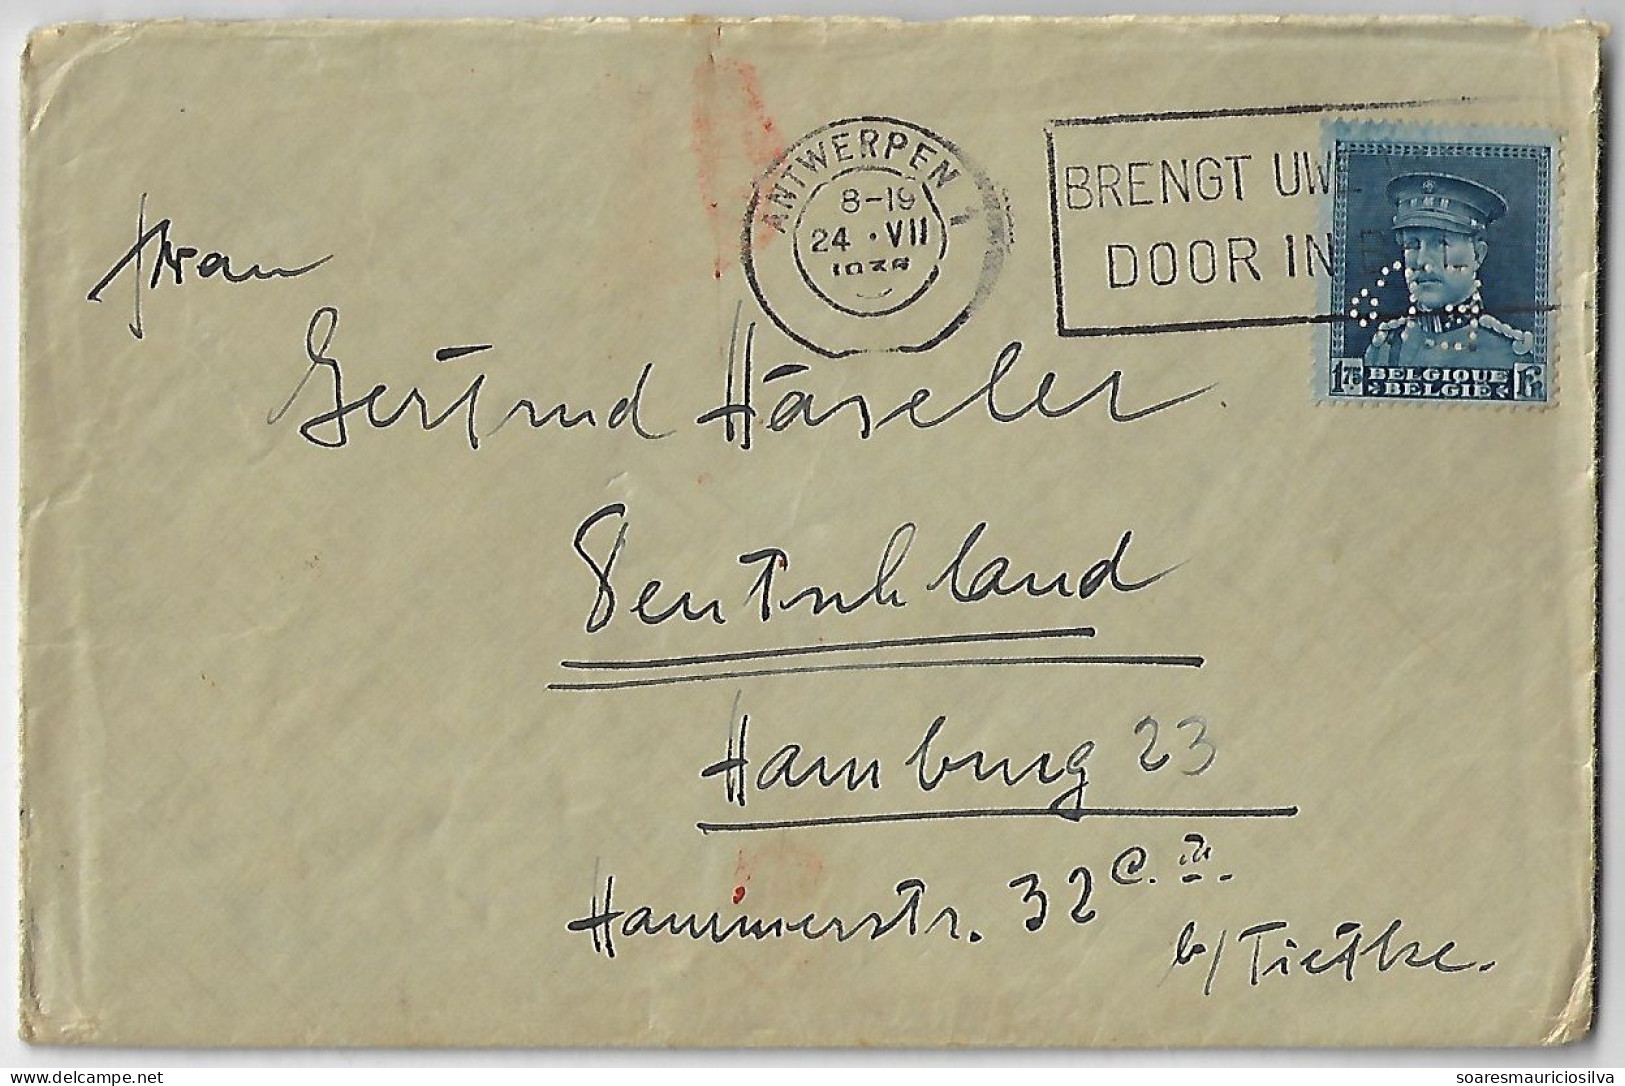 ANTWERPEN 1
8-19
24 · VII
BRENGT UWE
DOOR IN
1.75 BELGIQUE Fr
BELGIË
Frau
Gertrud Häseler
Deutschland
Hamburg 23
Hammerstr. 32 C.
b/ Tietke.
soaresmauriciosilva